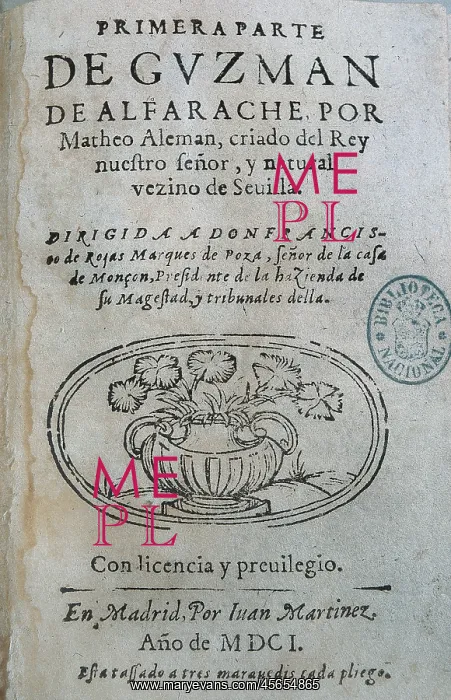 PRIMERA PARTE
DE GVZMAN
DE ALFARACHE, POR
Matheo Aleman, criado del Rey
nuestro señor, y natural
vezino de Seuilla.
DIRIGIDA A DON FRANCIS-
co de Rojas Marques de Poza, señor de la casa
de Monçon, Presidente de la hazienda de
su Magestad, y tribunales della.
BIBLIOTECA NACIONAL
Con licencia y preuilegio.
En Madrid, Por Iuan Martinez.
Año de MDCI.
Esta tassado a tres marauedis cada pliego.
ME
PL
ME
PL
www.maryevans.com/45654865